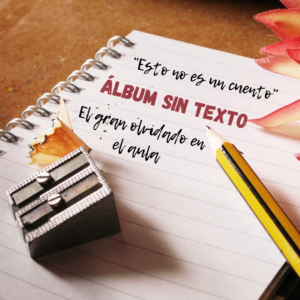 "Esto no es un cuento"
ÁLBUM SIN TEXTO
El gran olvidado en
el aula